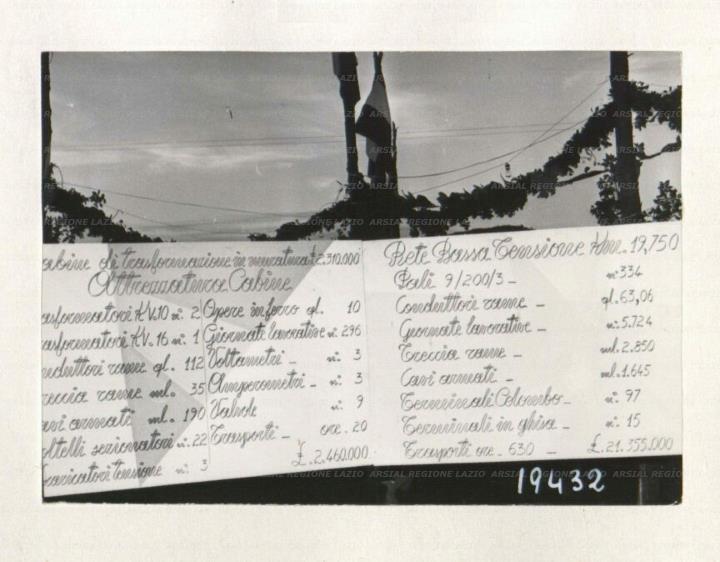 abine di trasformazione in muratura £ 2.310.000
Attrezzatura Cabine
asformatori KV. 10 n. 2
asformatori KV. 16 n. 1
nduttori rame ql. 112
reccia rame ml. 35
avi armati ml. 190
oltelli sezionatori n. 22
caricatori tensione n. 3
Opere in ferro ql. 10
Giornate lavorative n. 296
Voltametri - n. 3
Amperometri - n. 3
Valvole n. 9
Trasporti - ore. 20
£. 2.460.000
Rete Bassa Tensione Km. 19,750
Pali 9/200/3 - n. 334
Conduttori rame - ql. 63,06
Giornate lavorative - n. 5.724
Treccia rame - ml. 2.850
Cavi armati - ml. 1.645
Terminali Colombo - n. 97
Terminali in ghisa - n. 15
Trasporti ore. 630 - £. 21.355.000
19432
ARSIAL REGIONE LAZIO